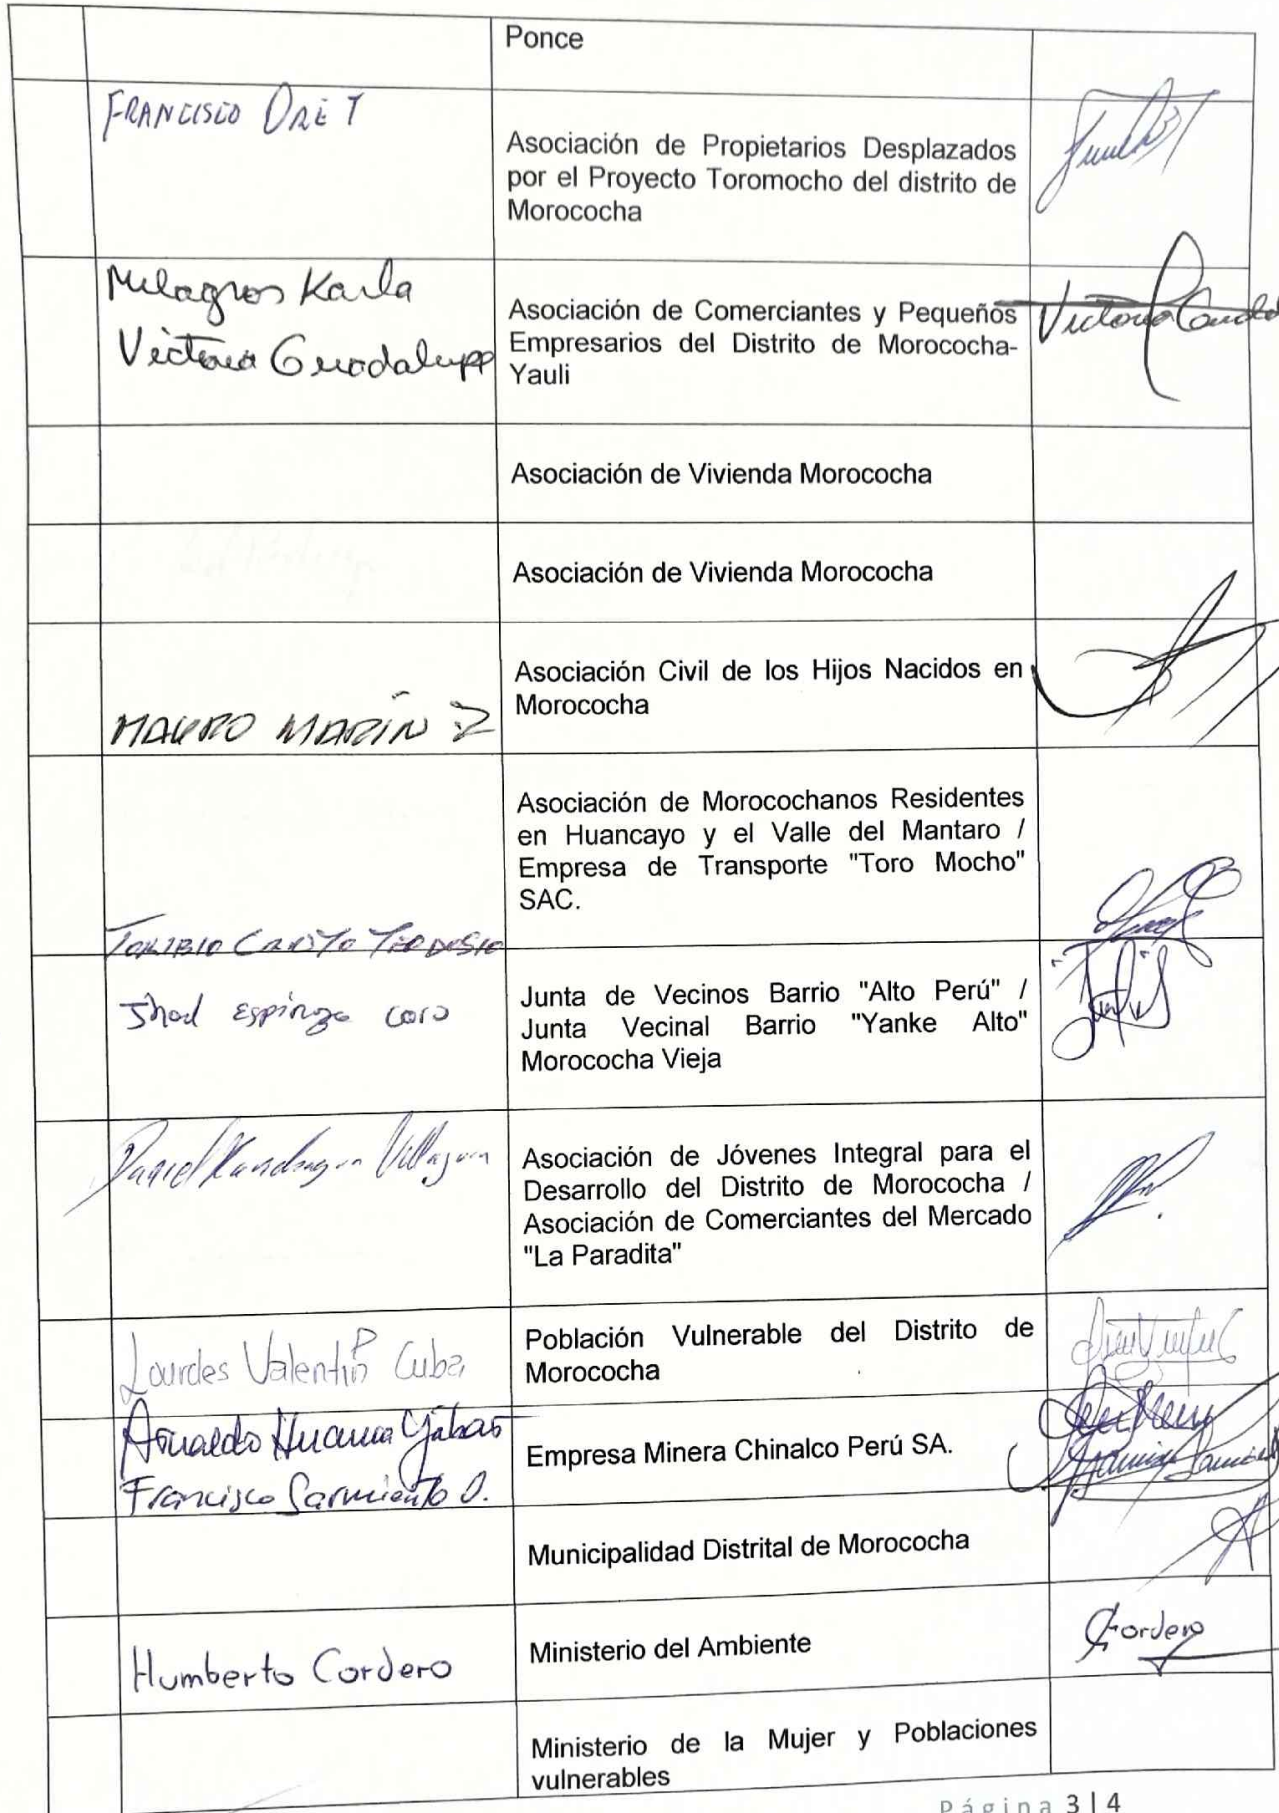 Ponce
FRANCISCO ORÉ T
Asociación de Propietarios Desplazados
por el Proyecto Toromocho del distrito de
Morococha
Milagros Karla
Victoria Guadalupe
Asociación de Comerciantes y Pequeños
Empresarios del Distrito de Morococha-
Yauli
Victoria
Asociación de Vivienda Morococha
Asociación de Vivienda Morococha
MAURO MARÍN Z
Asociación Civil de los Hijos Nacidos en
Morococha
Asociación de Morocochanos Residentes
en Huancayo y el Valle del Mantaro /
Empresa de Transporte "Toro Mocho"
SAC.
TORIBIO
Jhod Espinoza Coro
Junta de Vecinos Barrio "Alto Perú" /
Junta Vecinal Barrio "Yanke Alto"
Morococha Vieja
Daniel
Asociación de Jóvenes Integral para el
Desarrollo del Distrito de Morococha /
Asociación de Comerciantes del Mercado
"La Paradita"
Lourdes Valentín Cuba
Población Vulnerable del Distrito de
Morococha
Arnaldo Huama
Francisco Sarmiento O.
Empresa Minera Chinalco Perú SA.
Municipalidad Distrital de Morococha
Humberto Cordero
Ministerio del Ambiente
Cordero
Ministerio de la Mujer y Poblaciones
vulnerables
Página 3 | 4